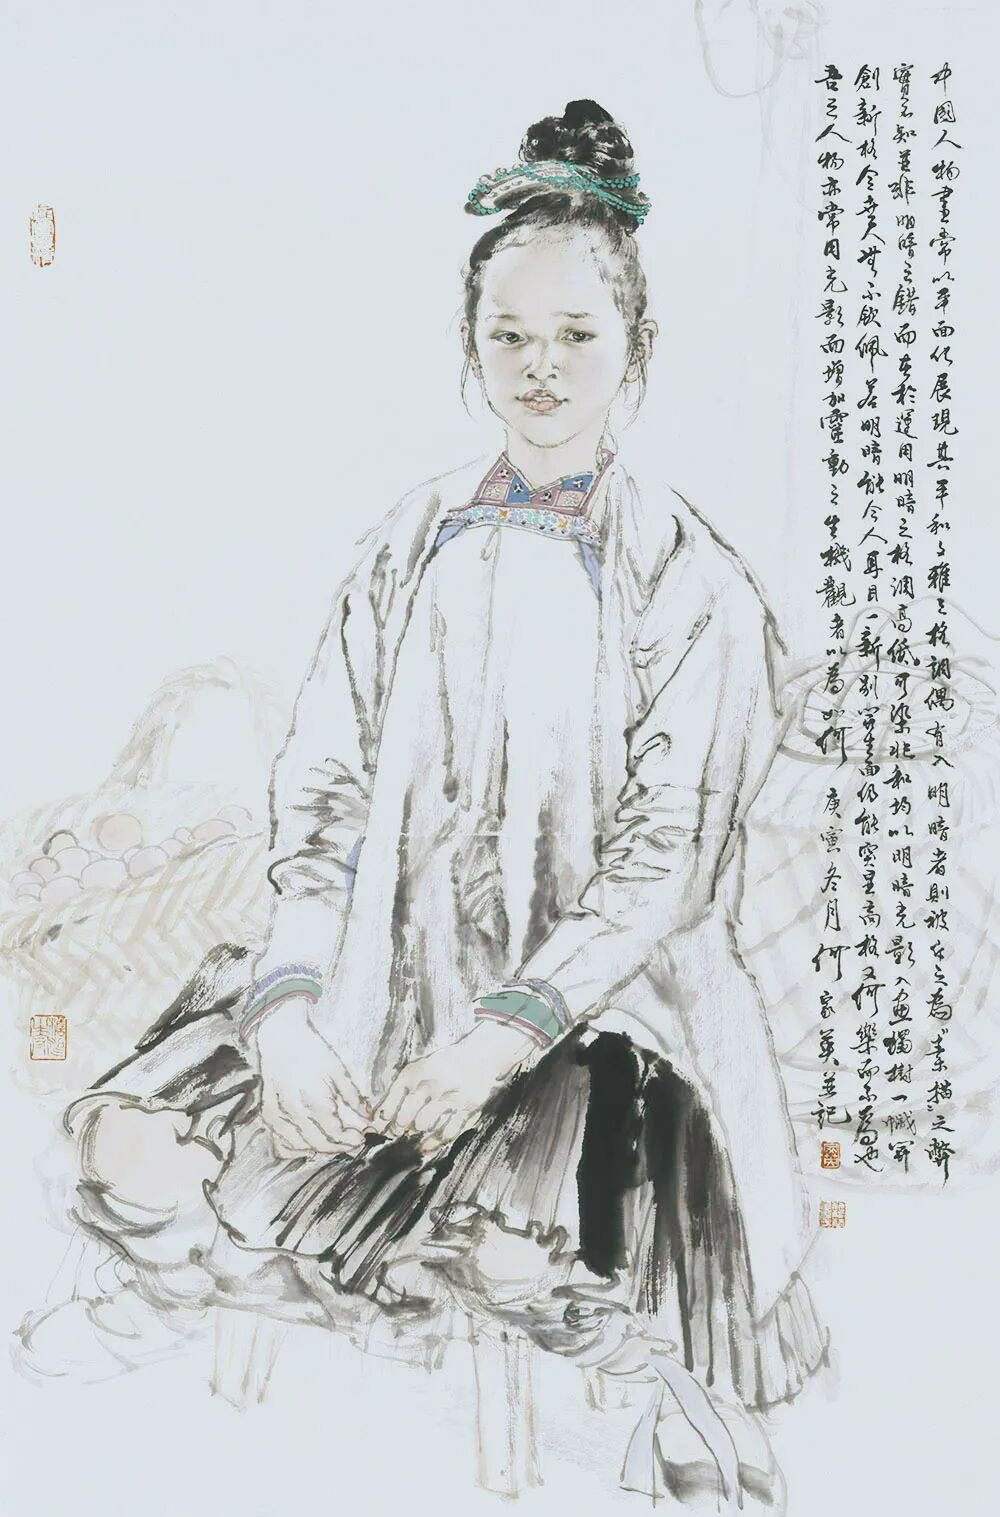 中國人物畫常以平面化展現其平和文雅之格調偶有入明暗者則被斥之為素描之弊
實不知並非明暗之錯而在於運用明暗之格調高低可染非和均以明暗光影入畫獨樹一幟開
創新格令世人無不欽佩若明暗能令人耳目一新別開生面仍能突呈高格又何樂而不為也
吾之人物亦常用光影而增加靈動之生機觀者以為如何 庚寅冬月何家英並記